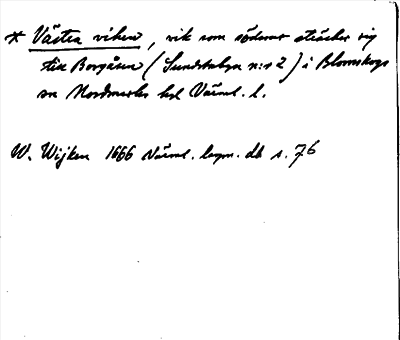 * Västra viken, vik som söderut sträcker sig
till Borgåsen (Sundstabyn n:o 2) i Blomskogs
sn Nordmarks hd Värml. l.
W. Wijken 1666 Värml. lagm. db s. 76